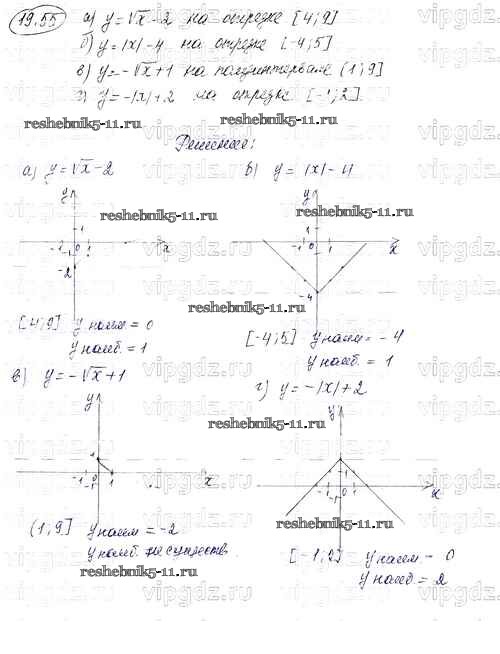 19.55 а) y = √x - 2 на отрезке [4; 9]
б) y = |x| - 4 на отрезке [-4; 5]
в) y = -√x + 1 на полуинтервале (1; 9]
г) y = -|x| + 2 на отрезке [-1; 2].
reshebnik5-11.ru
Решение:
а) y = √x - 2
б) y = |x| - 4
reshebnik5-11.ru
y
1
-1 0 1
x
-2
y
1
-1 0 1
x
-4
reshebnik5-11.ru
[4; 9] y наим = 0
y наиб. = 1
[-4; 5] y наим = -4
y наиб. = 1
в) y = -√x + 1
г) y = -|x| + 2
reshebnik5-11.ru
y
1
-1 1
x
y
1
-1 0 1
-1
x
(1; 9] y наим = -2
y наиб. не существ.
reshebnik5-11.ru
reshebnik5-11.ru
[-1; 2] y наим = 0
y наиб = 2
vipgdz.ru